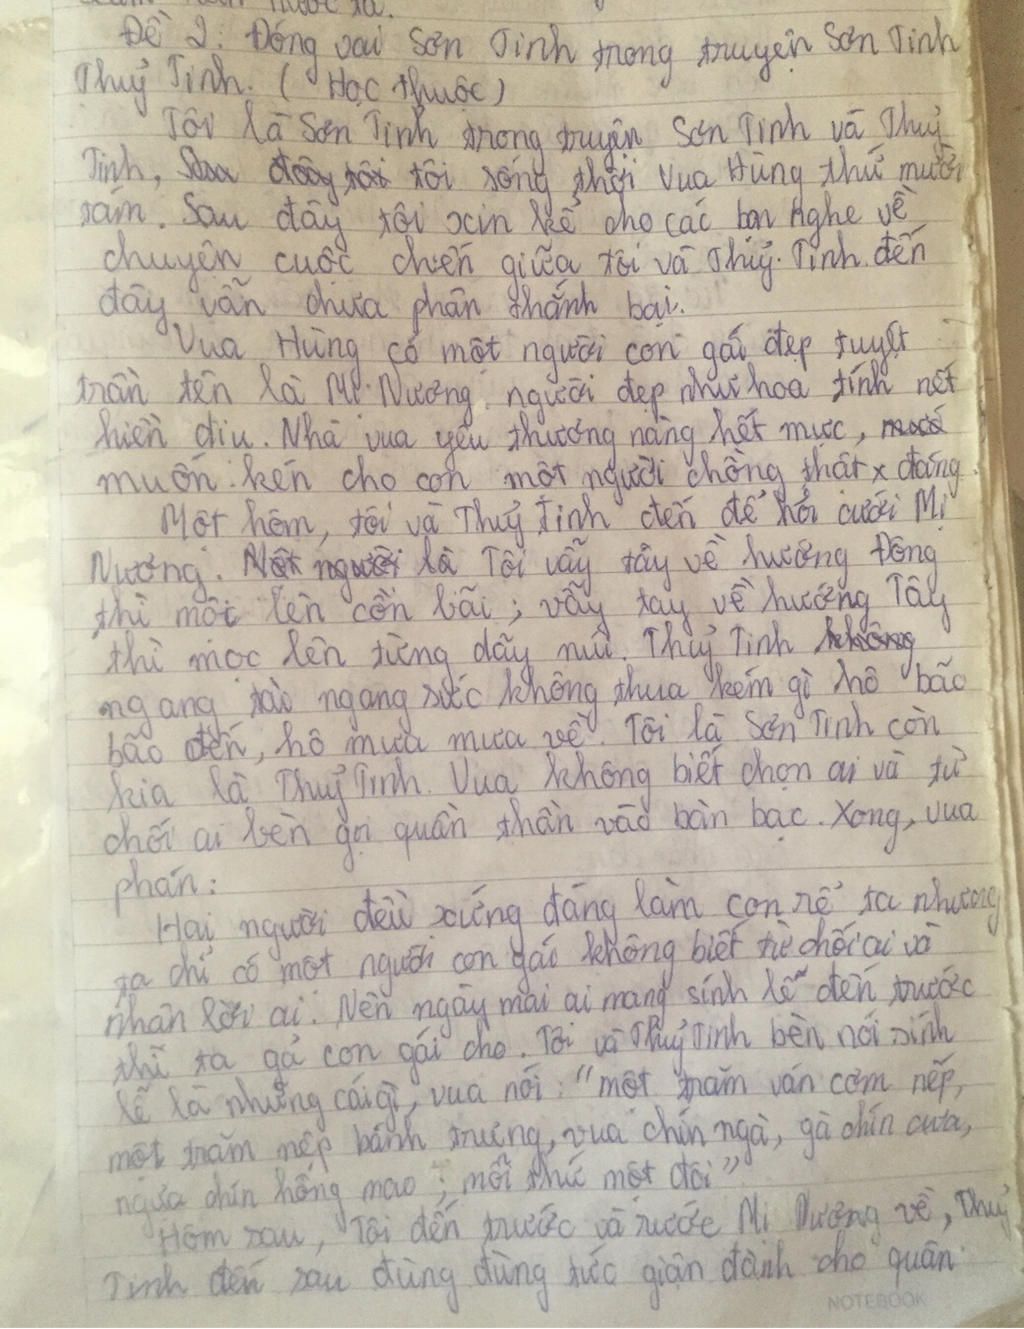 Đề 2: Đóng vai Sơn Tinh trong truyện Sơn Tinh
Thuỷ Tinh. ( Học thuộc)
Tôi là Sơn Tinh trong truyện Sơn Tinh và Thuỷ
Tinh, tôi sống thời Vua Hùng thứ mười
tám. Sau đây tôi xin kể cho các bạn nghe về
chuyện cuộc chiến giữa tôi và Thuỷ Tinh đến
đây vẫn chưa phân thắnh bại.
Vua Hùng có một người con gái đẹp tuyệt
trần tên là Mị Nương người đẹp như hoa tính nết
hiền dịu. Nhà vua yêu thương nàng hết mực,
muốn kén cho con một người chồng thật x đáng.
Một hôm, tôi và Thuỷ Tinh đến để hỏi cưới Mị
Nương. Tôi vẫy tây về hướng Đông
thì một lên cồn bãi; vẫy tay về hướng Tây
thì mọc lên từng dãy núi. Thuỷ Tinh
ngang tài ngang sức không thua kém gì hô bão
bão đến, hô mưa mưa về. Tôi là Sơn Tinh còn
kia là Thuỷ Tinh. Vua không biết chọn ai và từ
chối ai bèn gọi quần thần vào bàn bạc. Xong, vua
phán:
Hai người đều xứng đáng làm con rể ta nhương
ta chỉ có một người con gái không biết từ chối ai và
nhận lời ai. Nên ngày mai ai mang sính lễ đến trước
thì ta gả con gái cho. Tôi và Thuỷ Tinh bèn nói sính
lễ là những cái gì, vua nói: "một trăm ván cơm nếp,
một trăm nếp bánh trưng, vua chín ngà, gà chín cựa,
ngựa chín hồng mao; mỗi thứ một đôi"
Hôm sau, Tôi đến trước và rước Mị Nương về, Thuỷ
Tinh đến sau đùng đùng tức giận đành cho quân
NOTEBOOK